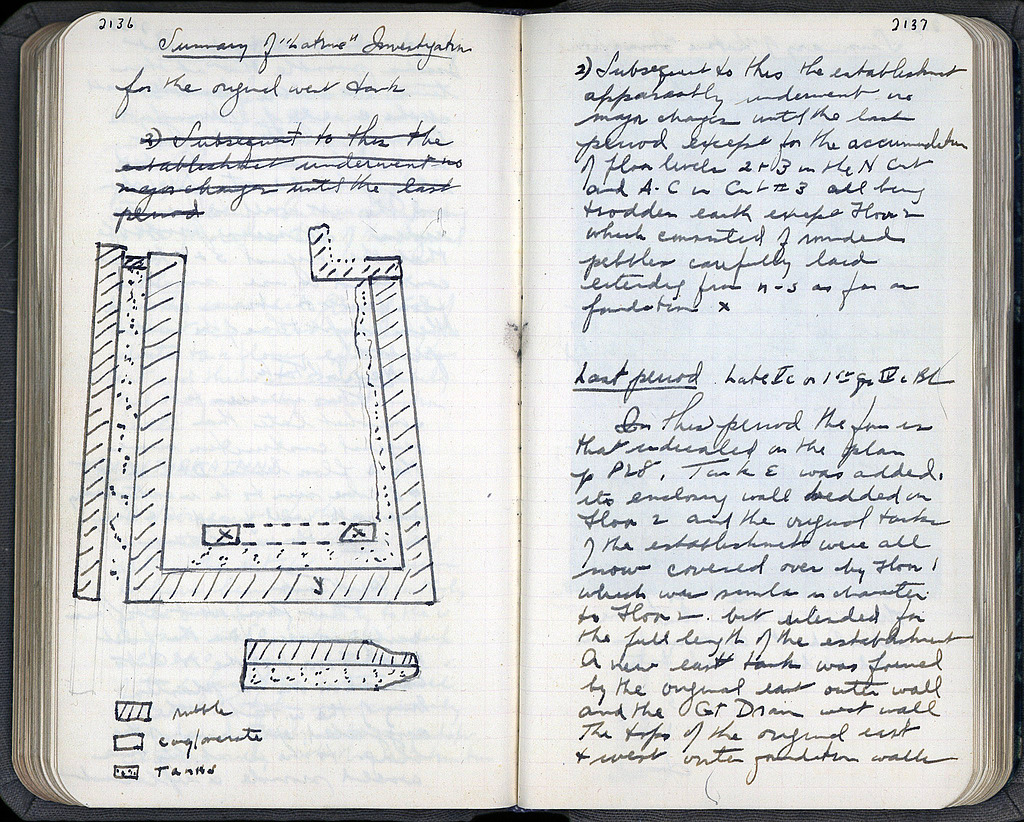 2136
Summary of "Latrine" Investigation
for the original west tank
3) Subsequent to this the
establishment underwent no
major changes until the last
period
x
x
y
rubble
conglomerate
Tanks
2137
2) Subsequent to this the establishment
apparently underwent no
major changes until the last
period except for the accumulation
of floor levels 2 + 3 in the N Cut
and A-C in Cut #3 all being
trodden earth except Floor 2
which consisted of rounded
pebbles carefully laid
extending from n-s as far as
foundation x
Last period Late Ic or 1st
In this period the form is
that indicated on the plan
p 2128. Tank E was added,
its enclosing wall bedded on
Floor 2 and the original tanks
of the establishment were all
now covered over by Floor 1
which was similar in character
to Floor 2 but extended for
the full length of the establishment
A new east tank was formed
by the original east outer wall
and the Gt Drain west wall
The tops of the original east
+ west outer foundation walls